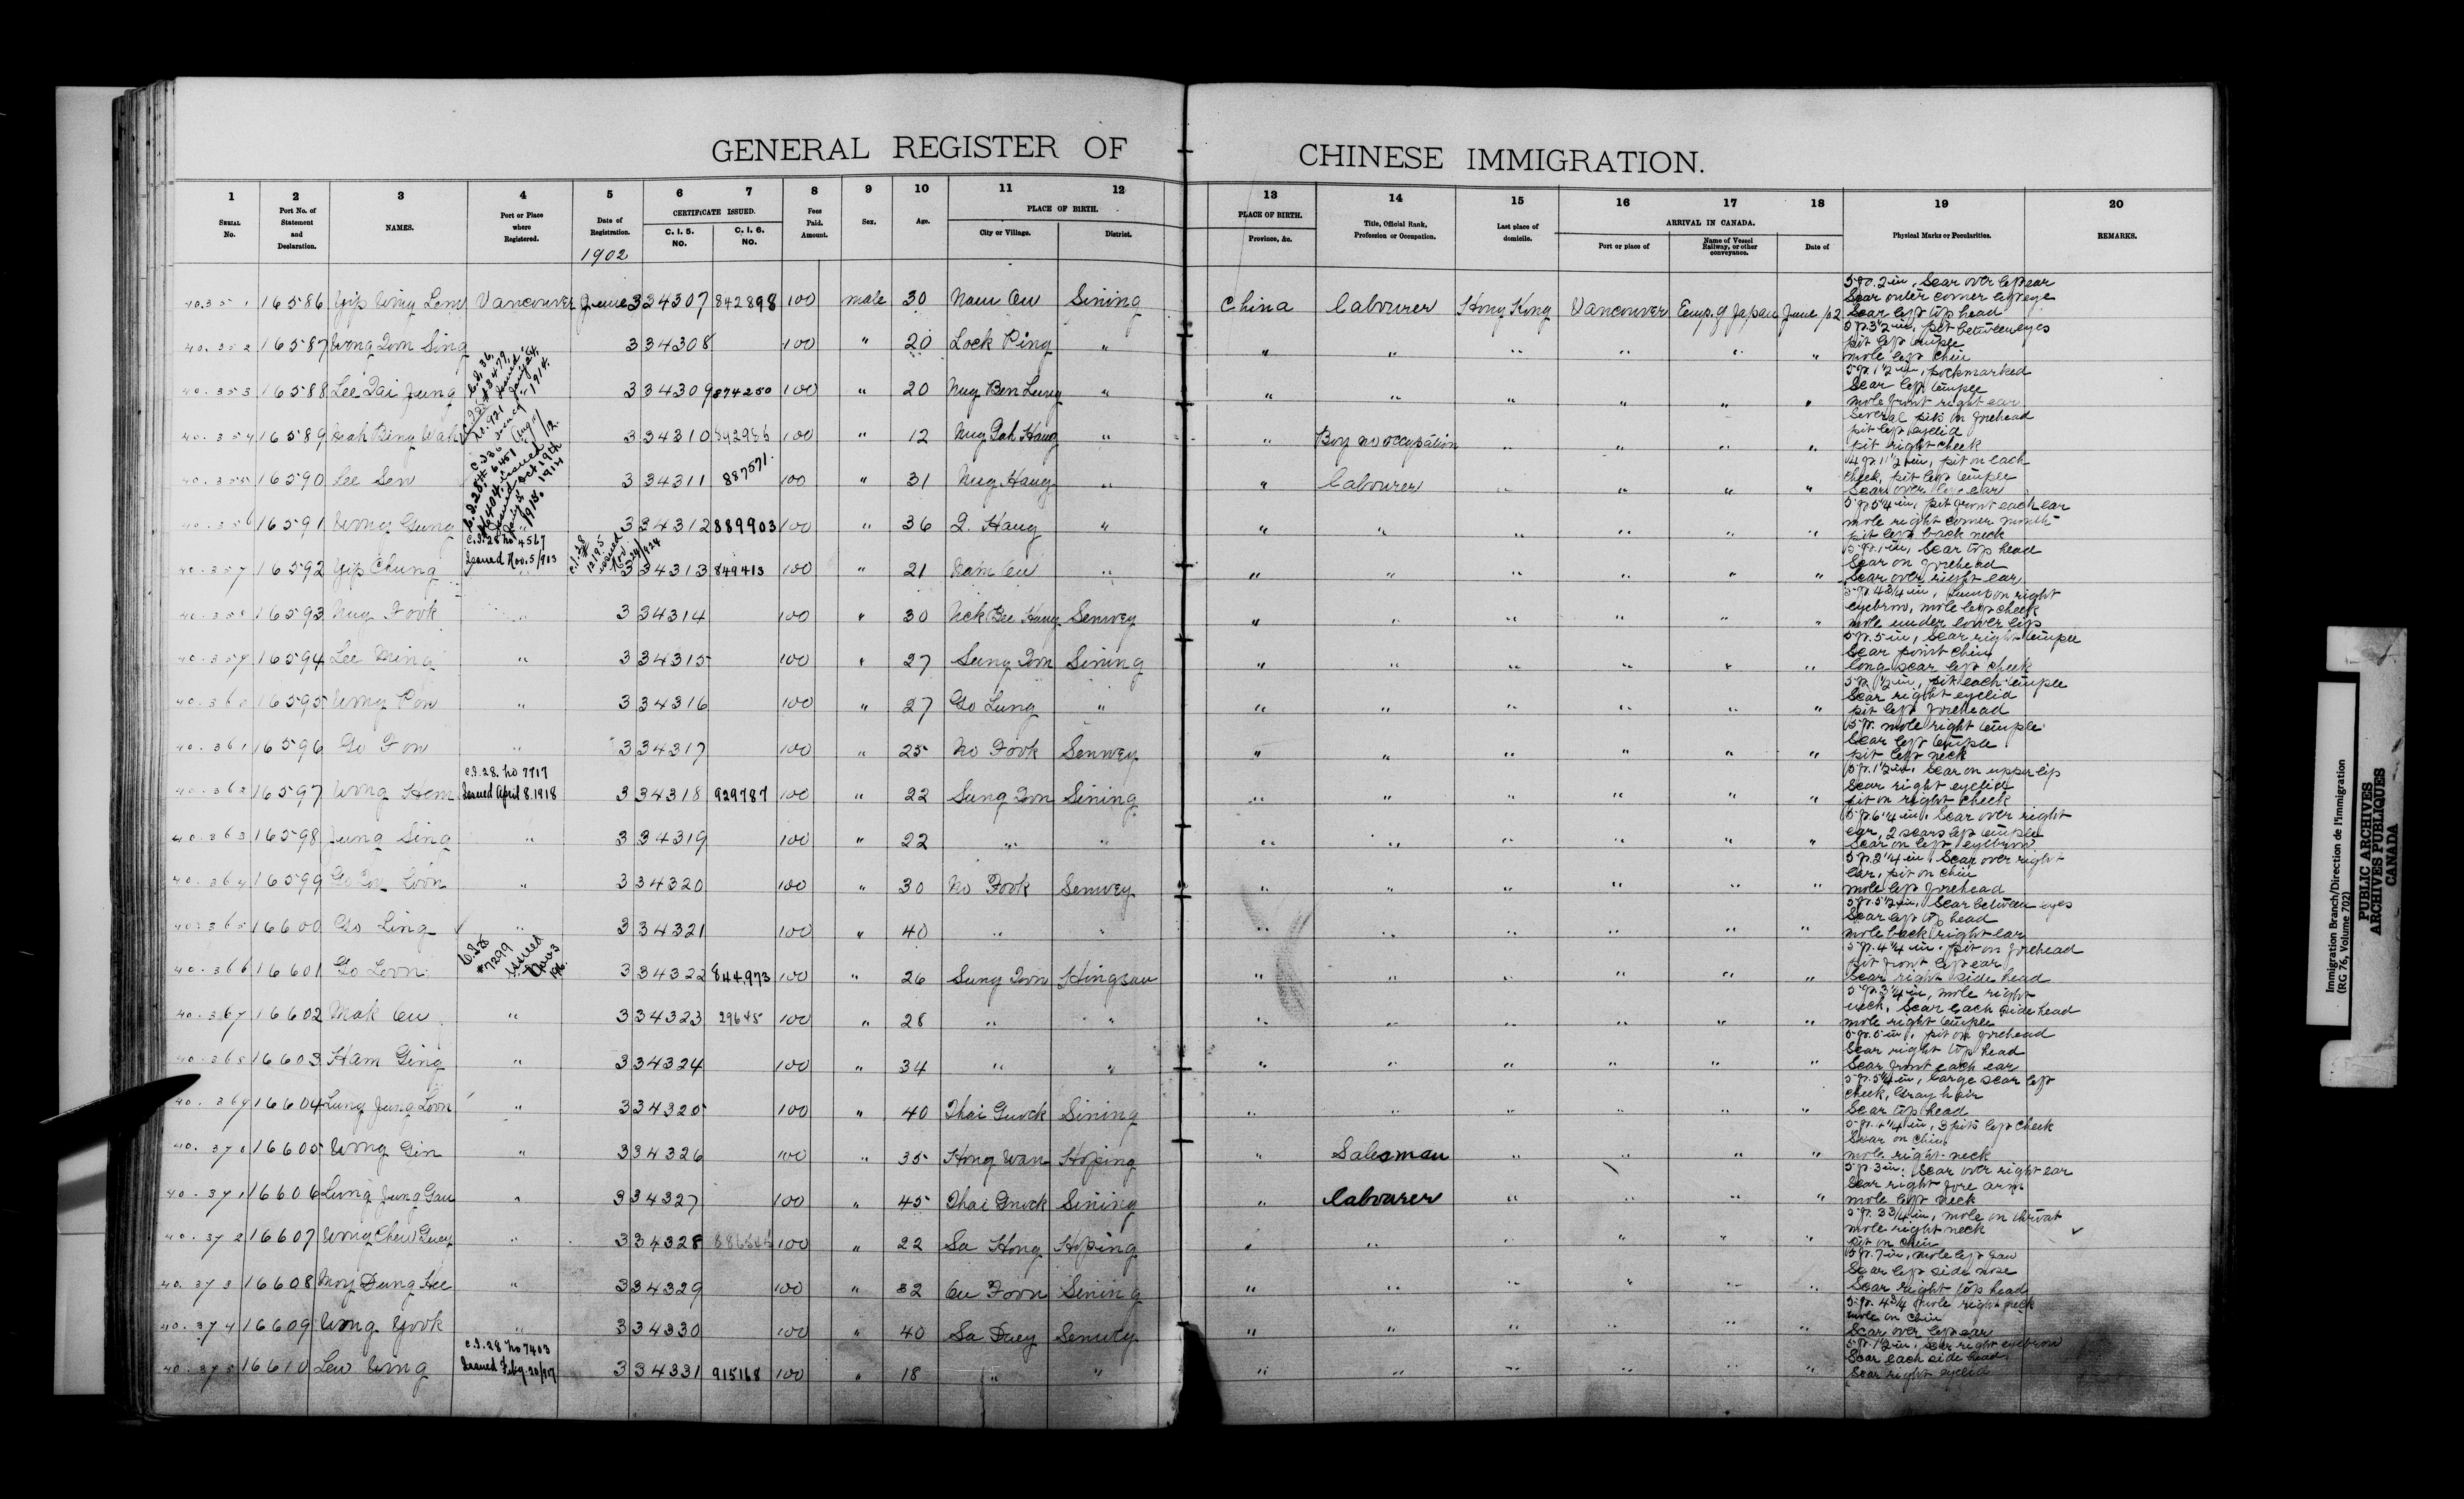 GENERAL REGISTER OF CHINESE IMMIGRATION.
1 2 3 4 5 6 7 8 9 10 11 12 13 14 15 16 17 18 19 20
SERIAL No. Port No. of Statement and Declaration. NAMES. Port or Place where Registered. Date of Registration. CERTIFICATE ISSUED. C. I. 5. NO. C. I. 6. NO. Fees Paid. Amount. Sex. Age. PLACE OF BIRTH. City or Village. District. PLACE OF BIRTH. Province, &c. Title, Official Rank, Profession or Occupation. Last place of domicile. ARRIVAL IN CANADA. Port or place of Name of Vessel Railway, or other conveyance. Date of Physical Marks or Peculiarities. REMARKS.
1902
40.351 16586 Yip Wing Lem Vancouver June 3 34307 842898 100 male 30 Nam On Sining China Labourer Hong Kong Vancouver Emp. of Japan June /02 5 ft. 2 in, Scar over left ear
Scar outer corner left eye
Scar left top head
40.352 16587 Wong Don Sing 3 34308 100 " 20 Lock Ping " " " " " " " 5 ft. 3 1/2 in, pit between eyes
pit left temple
mole left chin
40.353 16588 Lee Dai Jung 3 34309 874250 100 " 20 Nug Ben Lung " " " " " " " 5 ft. 1 1/2 in, pockmarked
Scar left temple
mole front right ear
40.354 16589 3 34310 100 " 12 " " Boy no occupation " " " " Several pits on forehead
pit left eyelid
pit right cheek
40.355 16590 Lee Sen 3 34311 887571 100 " 31 Nug Hang " " Labourer " " " " 4 ft. 11 1/2 in, pit on each
cheek, pit left temple
Scar over left ear
40.356 16591 Wong Gung 3 34312 889903 100 " 36 " " " " " " " 5 ft. 5 1/4 in, pit front each ear
mole right corner mouth
pit left back neck
C.I. 28 no 4567
Issued Nov. 5/913
40.357 16592 Yip Chung 3 34313 849413 100 " 21 Nam On " " " " " " " 5 ft. 1 in, Scar top head
Scar on forehead
Scar over right ear
40.358 16593 Nug Fook " 3 34314 100 " 30 Senwey " " " " " " 5 ft. 4 3/4 in, Lump on right
eyebrow, mole left cheek
mole under lower lip
40.359 16594 Lee Ming " 3 34315 100 " 27 Sung Don Sining " " " " " " 5 ft. 5 in, Scar right temple
Scar point chin
long scar left cheek
40.360 16595 Wong Pon " 3 34316 100 " 27 Go Lung " " " " " " " 5 ft. 1 1/2 in, pit each temple
Scar right eyelid
pit left forehead
40.361 16596 Go Fon " 3 34317 100 " 25 No Fook Senwey " " " " " " 5 ft. mole right temple
Scar left temple
pit left neck
C.I. 28. No 7717
Issued April 8. 1918
40.362 16597 Wong Hem 3 34318 929787 100 " 22 Sung Don Sining " " " " " " 5 ft. 1 1/2 in. Scar on upper lip
Scar right eyelid
pit on right cheek
40.363 16598 Jung Sing " 3 34319 100 " 22 " " " " " " " " 5 ft. 6 1/4 in. Scar over right
ear, 2 scars left temple
Scar on left eyebrow
40.364 16599 " 3 34320 100 " 30 No Fook Senwey " " " " " " 5 ft. 2 1/4 in. Scar over right
ear, pit on chin
mole left forehead
40.365 16600 Go Ling " 3 34321 100 " 40 " " " " " " " " 5 ft. 5 1/2 in, Scar between eyes
Scar left top head
mole back right ear
40.366 16601 Go Loon 3 34322 844973 100 " 26 Sung Don Hingsau " " " " " " 5 ft. 4 1/4 in. pit on forehead
pit front left ear
Scar right side head
40.367 16602 Mak On " 3 34323 29645 100 " 28 " " " " " " " " 5 ft. 3 1/4 in, mole right
neck, Scar each side head
mole right temple
40.368 16603 Ham Ging " 3 34324 100 " 34 " " " " " " " " 5 ft. 5 in, pit on forehead
Scar right top head
Scar front each ear
40.369 16604 Lung Jung Loon " 3 34325 100 " 40 Thai Guock Sining " " " " " " 5 ft. 5 1/4 in, Large scar left
cheek, Gray hair
Scar top head
40.370 16605 Wong Gin " 3 34326 100 " 35 Hong Wan Hoping " Salesman " " " " 5 ft. 4 1/4 in, 3 pits left cheek
Scar on chin
mole right neck
40.371 16606 Lung Jung Gau " 3 34327 100 " 45 Thai Guock Sining " Labourer " " " " 5 ft. 3 in. Scar over right ear
Scar right fore arm
mole left neck
40.372 16607 Wong Chew Guey " 3 34328 100 " 22 Sa Hong Hoping " " " " " " 5 ft. 3 3/4 in, mole on throat
mole right neck
pit on chin
40.373 16608 Moy Dung Hee " 3 34329 100 " 32 On Foon Sining " " " " " " 5 ft. 7 in, mole left jaw
Scar left side nose
Scar right top head
40.374 16609 Wong Yook " 3 34330 100 " 40 Sa Duey Senwey " " " " " " 5 ft. 4 3/4 mole right neck
mole on chin
Scar over left ear
C.I. 28 No 7403
Issued Feby. 20/17
40.375 16610 Lew Wing 3 34331 915168 100 " 18 " " " " " " " " 5 ft. 1 1/2 in. Scar right eyebrow
Scar each side head
Scar right eyelid
Immigration Branch/Direction de l'immigration
(RG 76, Volume 702)
PUBLIC ARCHIVES
ARCHIVES PUBLIQUES
CANADA